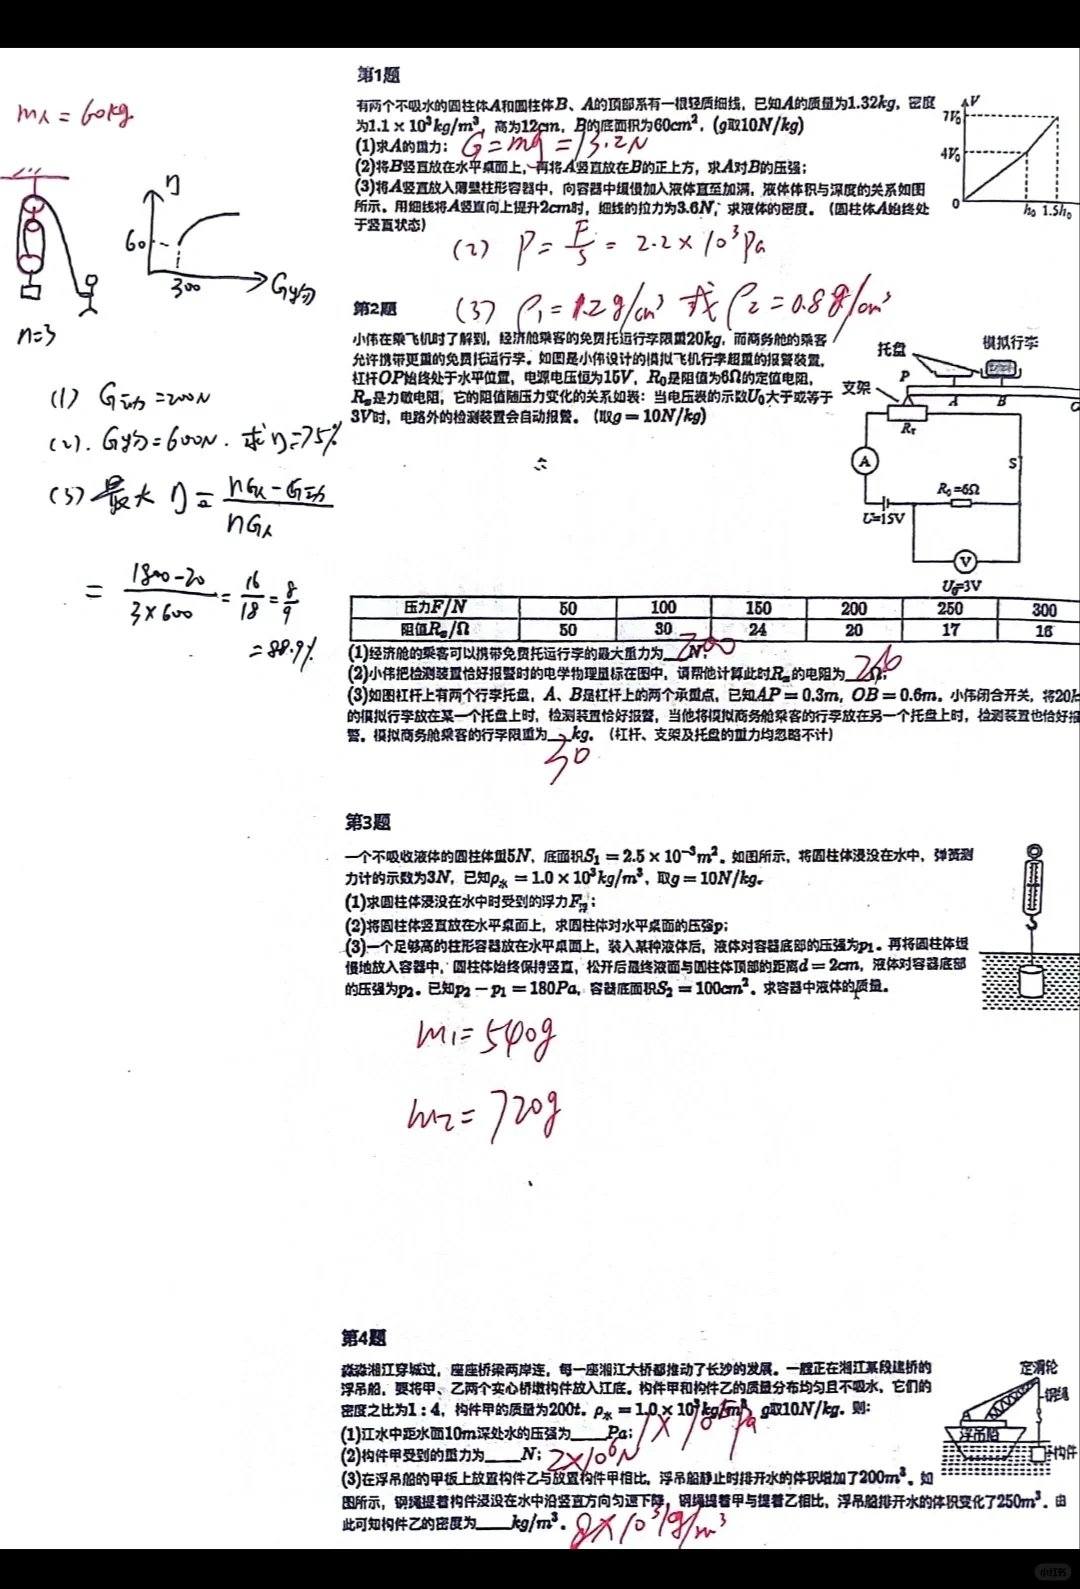 第1题
有两个不吸水的圆柱体A和圆柱体B、A的顶部系有一根轻质细线，已知A的质量为1.32kg，密度
为1.1×10³kg/m³，高为12cm，B的底面积为60cm²，(g取10N/kg)
(1)求A的重力； G=mg=13.2N
(2)将B竖直放在水平桌面上，再将A竖直放在B的正上方，求A对B的压强；
(3)将A竖直放入薄壁柱形容器中，向容器中缓慢加入液体直至加满，液体体积与深度的关系如图
所示。用细线将A竖直向上提升2cm时，细线的拉力为3.6N，求液体的密度。（圆柱体A始终处
于竖直状态）
V
7V₀
4V₀
0
h₀ 1.5h₀
(2) P=F/S=2.2×10³Pa
(3) ρ₁=1.2g/cm³ 或 ρ₂=0.8g/cm³
m人=60kg
η
60
300
G物
n=3
(1) G动=200N
(2). G物=600N. 求η=75%
(3) 最大 η=(nG人-G动)/(nG人)
=(1800-20)/(3×600)=16/18=8/9
=88.9%
第2题
小伟在乘飞机时了解到，经济舱乘客的免费托运行李限重20kg，而商务舱的乘客
允许携带更重的免费托运行李。如图是小伟设计的模拟飞机行李超重的报警装置，
杠杆OP始终处于水平位置，电源电压恒为15V，R₀是阻值为6Ω的定值电阻，
Rₓ是力敏电阻，它的阻值随压力变化的关系如表：当电压表的示数U₀大于或等于
3V时，电路外的检测装置会自动报警。（取g=10N/kg）
托盘
模拟行李
P
支架
A
B
Rₓ
A
S
R₀=6Ω
U=15V
V
U₀=3V
压力F/N 50 100 150 200 250 300
阻值Rₓ/Ω 50 30 24 20 17 16
(1)经济舱的乘客可以携带免费托运行李的最大重力为 200 N；
(2)小伟把检测装置恰好报警时的电学物理量标在图中，请帮他计算此时Rₓ的电阻为 Ω；
(3)如图杠杆上有两个行李托盘，A、B是杠杆上的两个承重点，已知AP=0.3m，OB=0.6m。小伟闭合开关，将20k
的模拟行李放在某一个托盘上时，检测装置恰好报警，当他将模拟商务舱乘客的行李放在另一个托盘上时，检测装置也恰好报
警。模拟商务舱乘客的行李限重为__kg。（杠杆、支架及托盘的重力均忽略不计）
30
第3题
一个不吸收液体的圆柱体重5N，底面积S₁=2.5×10⁻³m²。如图所示，将圆柱体浸没在水中，弹簧测
力计的示数为3N，已知ρ水=1.0×10³kg/m³，取g=10N/kg。
(1)求圆柱体浸没在水中时受到的浮力F浮；
(2)将圆柱体竖直放在水平桌面上，求圆柱体对水平桌面的压强p；
(3)一个足够高的柱形容器放在水平桌面上，装入某种液体后，液体对容器底部的压强为p₁。再将圆柱体缓
慢地放入容器中，圆柱体始终保持竖直，松开后最终液面与圆柱体顶部的距离d=2cm，液体对容器底部
的压强为p₂。已知p₂-p₁=180Pa，容器底面积S₂=100cm²。求容器中液体的质量。
m₁=540g
m₂=720g
第4题
淼淼湘江穿城过，座座桥梁两岸连，每一座湘江大桥都推动了长沙的发展。一艘正在湘江某段建桥的
浮吊船，要将甲、乙两个实心桥墩构件放入江底。构件甲和构件乙的质量分布均匀且不吸水，它们的
密度之比为1:4，构件甲的质量为200t。ρ水=1.0×10³kg/m³，g取10N/kg。则：
(1)江水中距水面10m深处水的压强为____Pa； 1×10⁵Pa
(2)构件甲受到的重力为____N； 2×10⁶N
(3)在浮吊船的甲板上放置构件乙与放置构件甲相比，浮吊船静止时排开水的体积增加了200m³。如
图所示，钢绳提着构件浸没在水中沿竖直方向匀速下降，钢绳提着甲与提着乙相比，浮吊船排开水的体积变化了250m³。由
此可知构件乙的密度为____kg/m³。 8×10³kg/m³
定滑轮
钢绳
浮吊船
构件
小红书